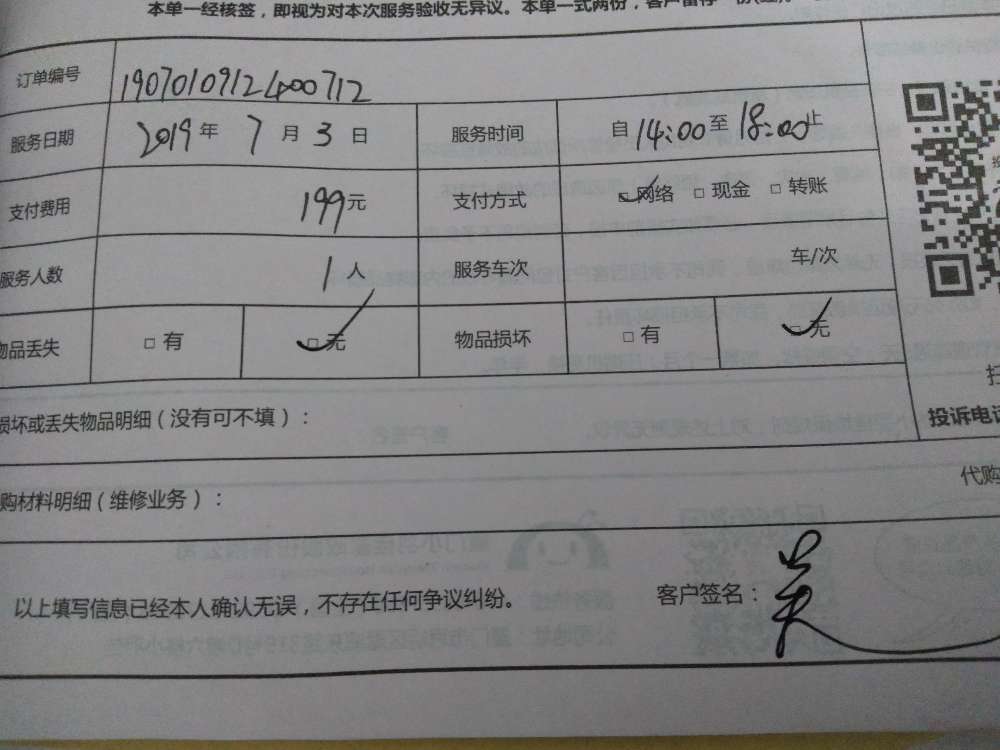 本单一经核签，即视为对本次服务验收无异议。本单一式两份，客户留存一份
订单编号 1907010912400712
服务日期 2019年 7月 3日 服务时间 自14:00至18:00止
支付费用 199元 支付方式 □网络 □现金 □转账
服务人数 1人 服务车次 车/次
物品丢失 □有 □无 物品损坏 □有 □无
损坏或丢失物品明细（没有可不填）：
投诉电话
购材料明细（维修业务）： 代购
以上填写信息已经本人确认无误，不存在任何争议纠纷。 客户签名：吴